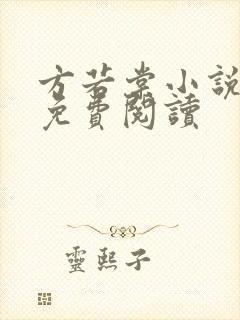 方若棠小說
免費閱讀
靈熙子